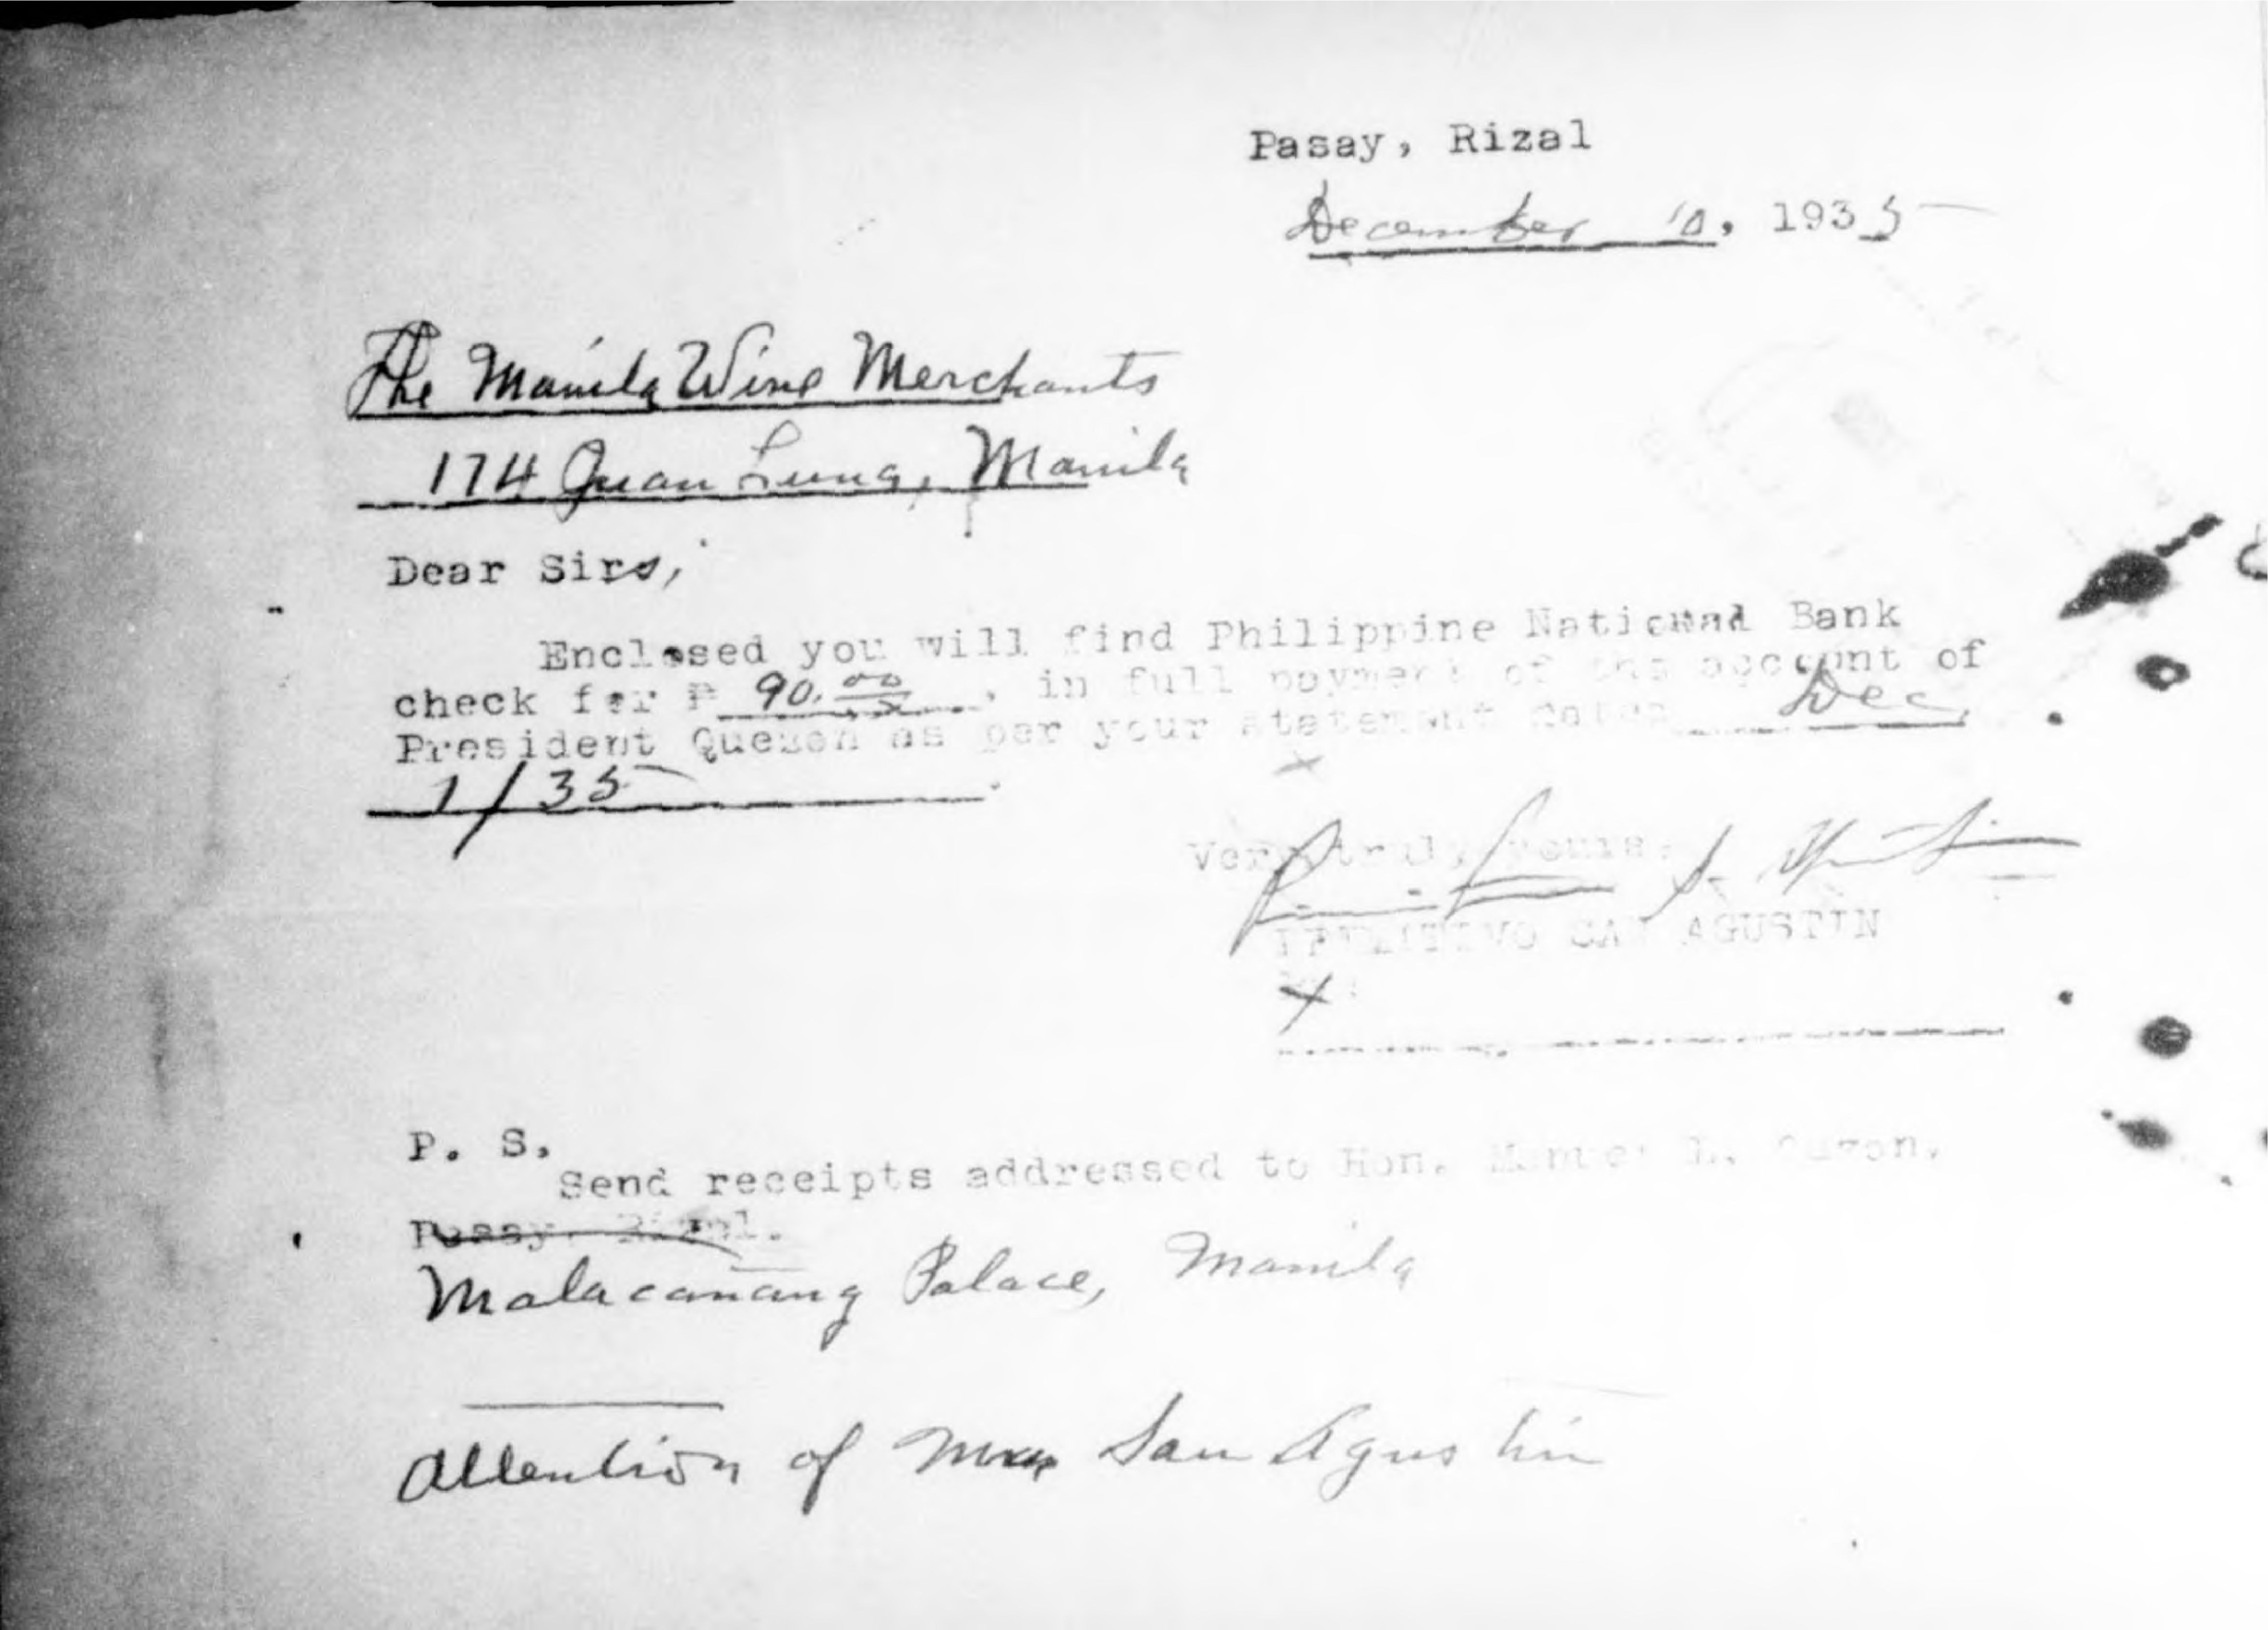 Pasay, Rizal
December 10, 1935
The Manila Wine Merchants
174 Juan Luna, Manila
Dear Sirs,
Enclosed you will find Philippine National Bank
check for ₱ 90.00, in full payment of the account of
President Quezon as per your statement dated Dec.
1/35.
Very truly yours,
PRIMITIVO SAN AGUSTIN
P. S.
Send receipts addressed to Hon. Manuel L. Quezon,
Pasay, Rizal.
Malacanang Palace, Manila
Attention of San Agustin